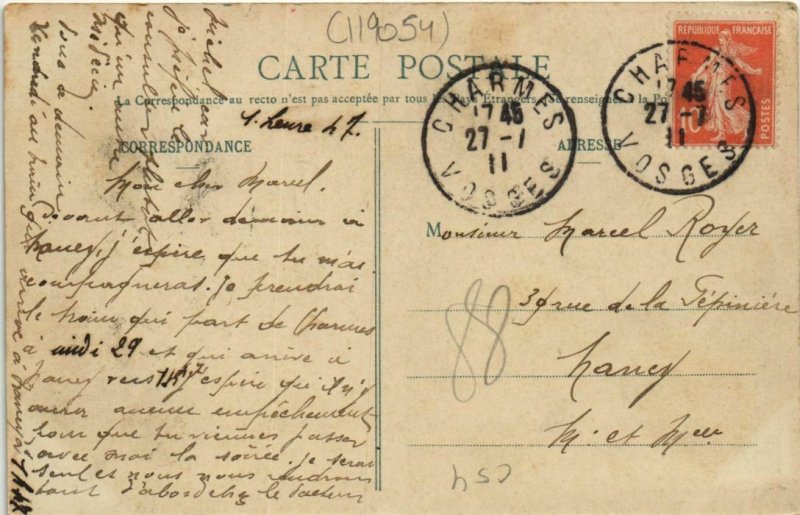 (119054)
CARTE POSTALE
La Correspondance au recto n'est pas acceptée par tous les pays Étrangers. Se renseigner à la Po
CORRESPONDANCE
ADRESSE
RÉPUBLIQUE FRANÇAISE
10
POSTES
CHARMES
17 45
27 -7
11
VOSGES
CHARMES
17 45
27 -7
11
VOSGES
1 heure 47.
Mon cher Marcel.
Devant aller demain à
Nancy, j'espère que tu m'ac
compagneras. Je prendrai
le train qui part de Charmes
à midi 29 et qui arrive à
Nancy vers 1h47 j'espère qu'il n'y
aura aucun empêchement
pour que tu viennes passer
avec moi la soirée. Je serai
seul et nous nous rendrons
tout d'abord chez le docteur
je préfère
consulter
qu'un
médecin.
Vous à demain
Vendredi au train qui arrive à Nancy à 1h47
Monsieur Marcel Royer
39 rue de la Pépinière
Nancy
M. et Melle
88
450